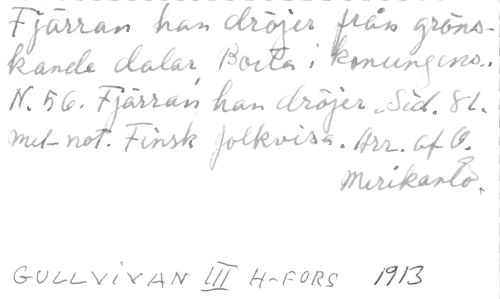 Fjärran han dröjer från gröns-
kande dalar, Borta i konungens..
N. 56. Fjärran han dröjer. Sid. 81.
med not. Finsk folkvisa. Arr. af O.
Merikanto.
GULLVIVAN III H-FORS 1913